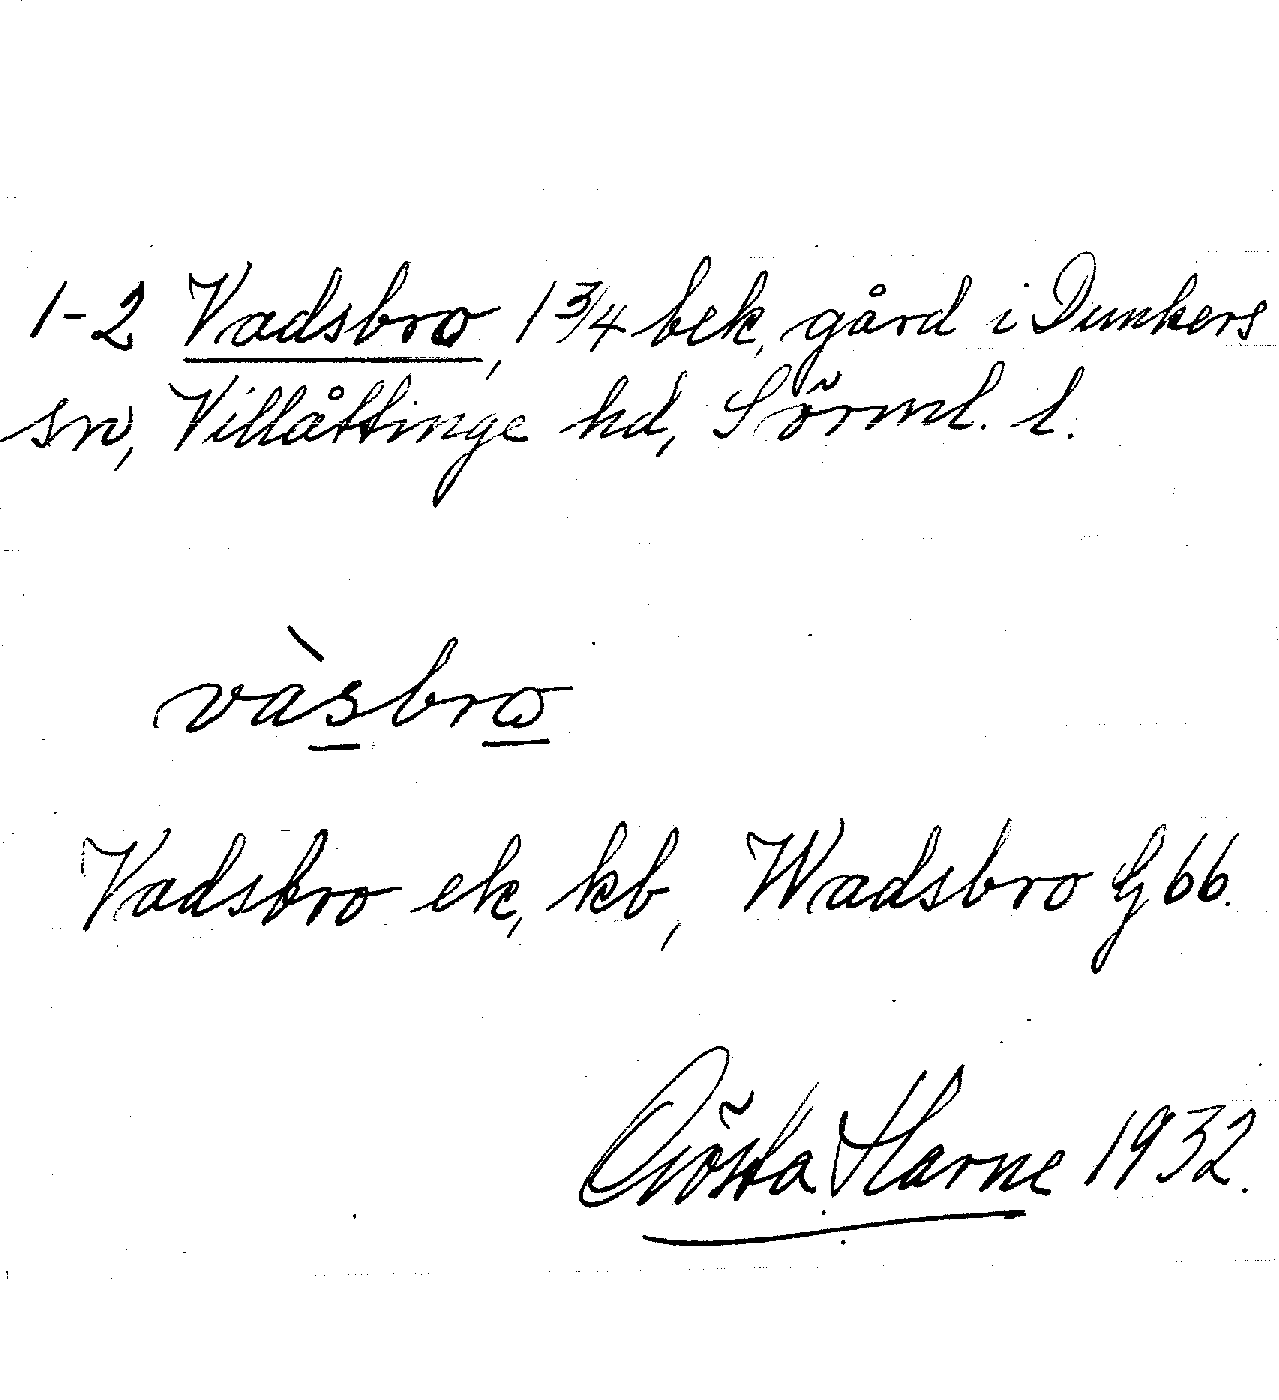 1-2 Vadsbro, 1 3/4 bek, gård i Dunkers
sn, Villåttinge hd, Sörml. l.
vàsbro
Vadsbro ek, kb, Wadsbro G 66.
Gösta Harne 1932.